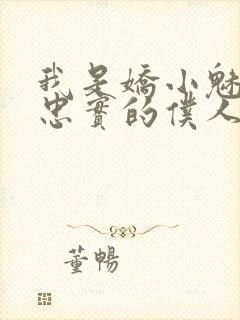 我是嬌小魅
忠實的僕人
董暢